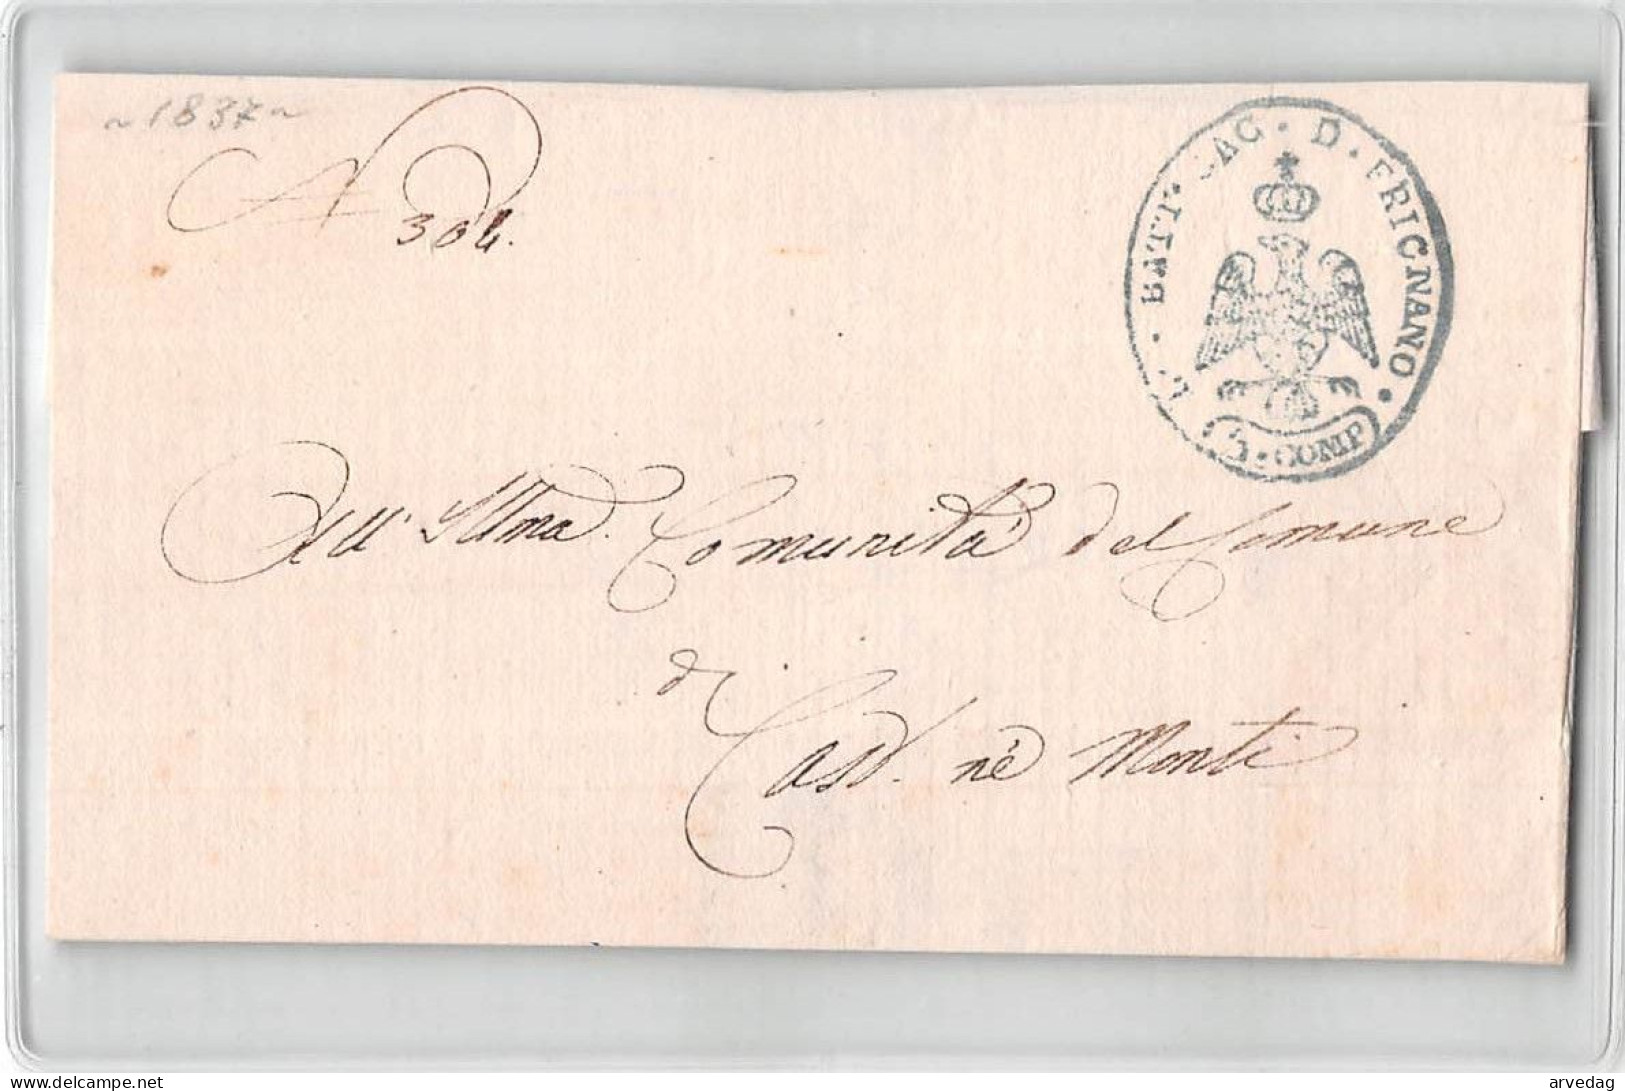 ~ 1837 ~
N 304.
BATT. CAC. D. FRIGNANO.
COMP
All' Illma. Comunità del Comune
di
Cast. nè Monti
delcampe.net
arvedag